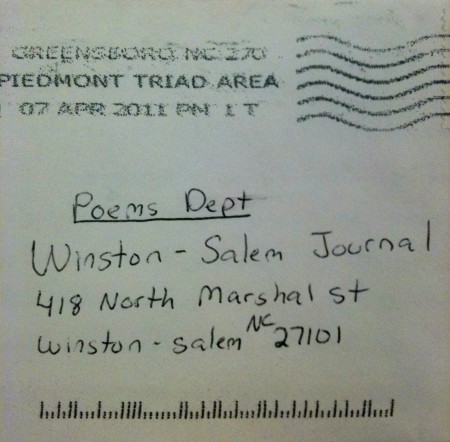 GREENSBORO NC 270
PIEDMONT TRIAD AREA
07 APR 2011 PM 1 T
Poems Dept
Winston - Salem Journal
418 North Marshal St
Winston - Salem NC 27101